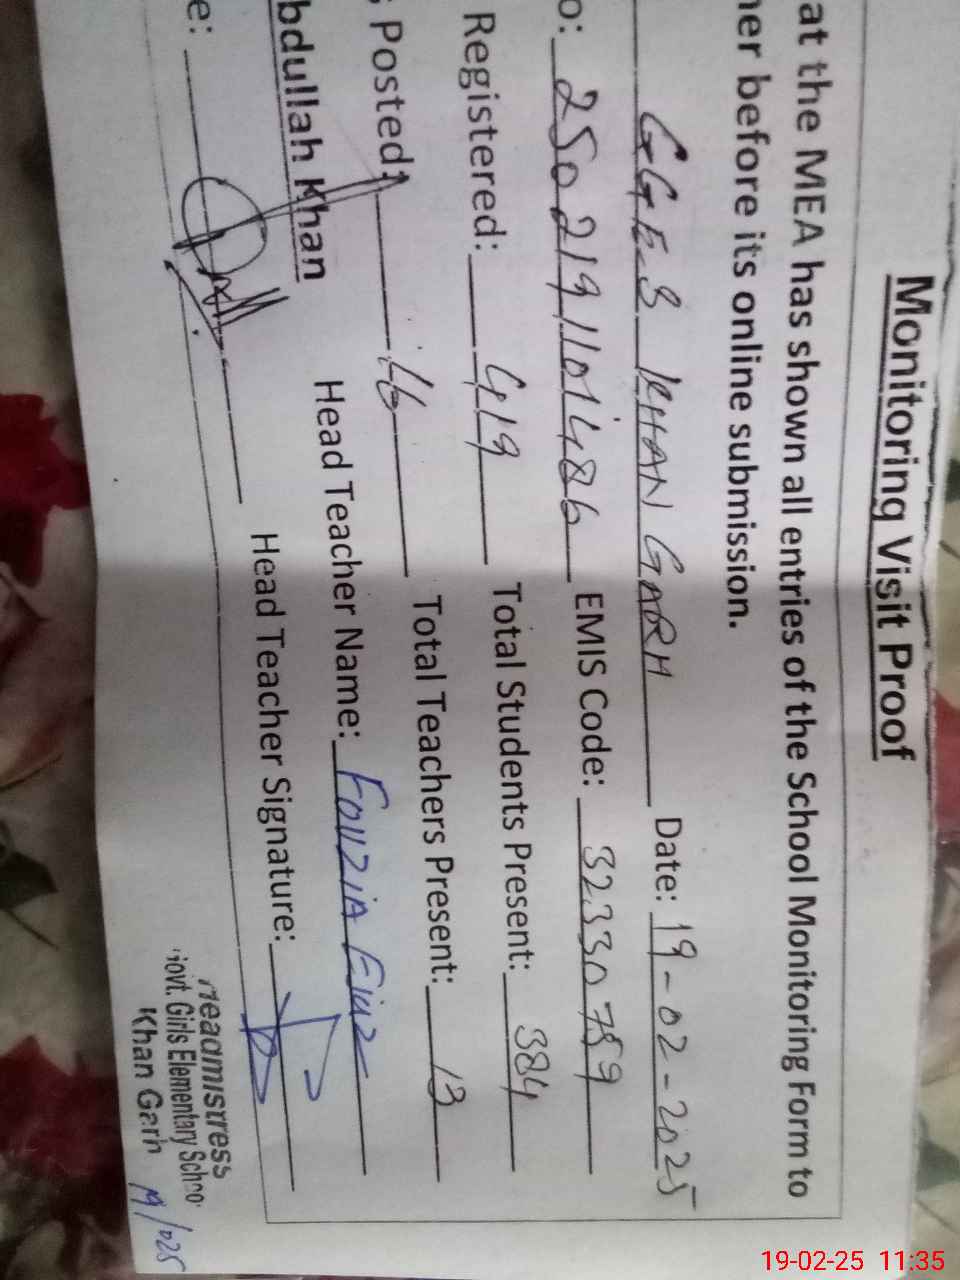 Monitoring Visit Proof
at the MEA has shown all entries of the School Monitoring Form to
her before its online submission.
GGES KHAN GARH Date: 19-02-2025
o: 2502191101486 EMIS Code: 32330759
Registered: 419 Total Students Present: 384
Posted: 16 Total Teachers Present: 13
bdullah Khan Head Teacher Name: Fouzia
e: Head Teacher Signature:
Headmistress
Govt. Girls Elementary School
Khan Garh
19-02-25 11:35